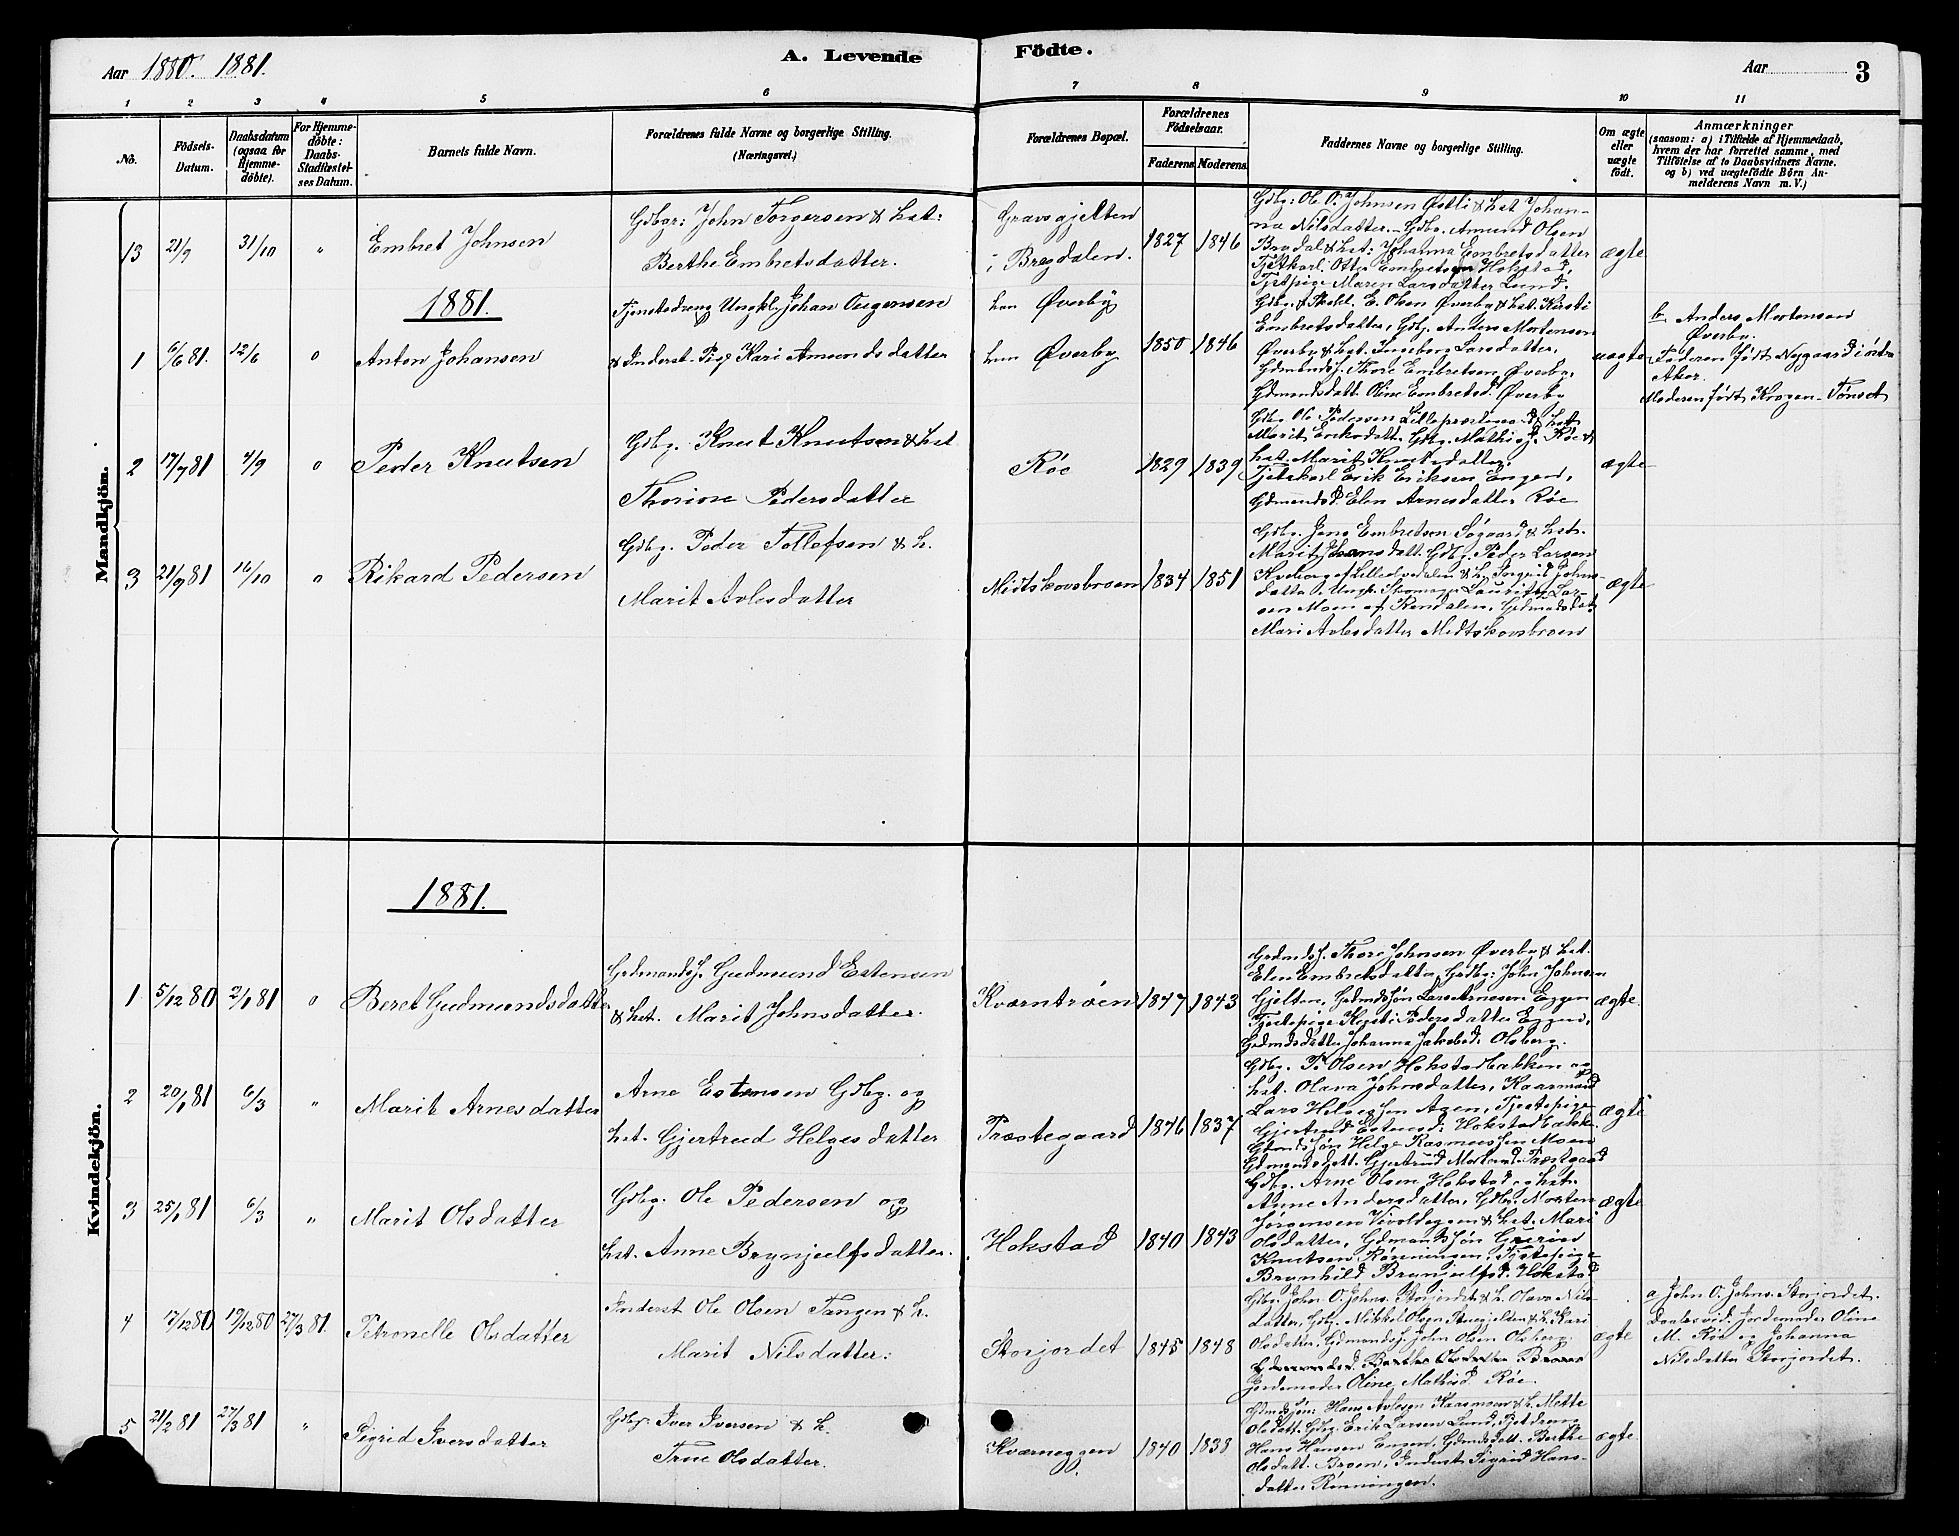 Aar 1880. 1881.
A. Levende
Födte.
Aar
3
1 2 3 4 5 6 7 8 9 10 11
No.
Födsels-
Datum.
Daabsdatum
(ogsaa for
Hjemme-
döbte).
For Hjemme-
döbte:
Daabs-
Stadfæstel-
ses Datum.
Barnets fulde Navn.
Forældrenes fulde Navne og borgerlige Stilling.
(Næringsvei.)
Forældrenes Bopæl.
Forældrenes
Födselsaar.
Faderens
Moderens
Faddernes Navne og borgerlige Stilling.
Om ægte
eller
uægte
födt.
Anmærkninger
(saasom: a) i Tilfælde af Hjemmedaab,
hvem der har forrettet samme, med
Tilföielse af to Daabsvidners Navne.
og b) ved uægtefödte Börn An-
melderens Navn m. V.)
Mandkjön.
13
21/9
31/10
"
Embret Johnsen
Gdbgr: John Torgersen & hst:
Berthe Embretsdatter.
Gravsgjelten
i Brydalen.
1827
1846
Gdbg: Ole O. Johnsen Østli & hst Johan-
na Nilsdatter. Gdbg. Amund Olsen
Brodal & hst: Johanna Embretsdatter
Tjstkarl. Otter Embretsen Hokstad,
Tjstpige Maren Larsdatter Lund.
ægte
1881.
1
6/6 81
12/6
o
Anton Johansen
Tjenestedreng Ungkl. Johan Jørgensen
& Inderst. Pige Kari Amundsdatter
han Øverby
hun Øverby
1850
1846
Gdbg. & E. Olsen Øverby & hst. Kersti
Embretsdatter, Gdbg. Anders Mortensen
Øverby & hst. Ingeborg Larsdatter,
Gdmandss. Thore Embretsen Øverby,
Gdmandsdatt. Oline Embretsd. Øverby
uægte
b Anders Mortensen
Øverby.
Faderen født Nygaard i østre
Aker.
Moderen født Krogen - Tønset
2
17/7 81
4/9
o
Peder Knutsen
Gdbg. Knut Knutsen & hst
Thorine Pedersdatter
Røe
1829
1839
Gdbg. Ole Pedersen & hst
Marit datt. Gdbg. Mathis J. Røe &
hst. Marit Knutsdatter,
Tjstkarl Erik Eriksen Engen,
Gdmandsd. Elen Arnesdatter Røe
ægte
3
21/9 81
16/10
o
Rikard Pedersen
Gdbg. Peder Tollefsen & h.
Marit Avlesdatter
Midtskovsbroen
1834
1851
Gdbg. Jens Embretsen Søgaard & hst.
Marit datt. Gdbg. Peder Larsen
Kveberg af Lilleelvedalen & h. Sigrid Johns-
datter, Ungk. Skomager Lauritz Lar-
sen Moen af Rendalen, Gdmandsdat
Mari Avlesdatter Midtskovsbroen
ægte
Kvindekjön.
1881.
1
5/12 80
2/1 81
o
Beret Gudmundsdatter
Grdmandss. Gudmund Estensen
& hst. Marit Johnsdatter.
Kværntrøen
1847
1843
Grdmdss. Thore Johnsen Øverby & hst.
Elen Embretsdatter, Grdbg: John Johnsen
Gjelten, Grdmdssøn Lars Arnesen Eggen
Tjstepige Kersti Pedersdatter Eggen,
Grdmdsdatter Johanna Jakobsd. Olsberg.
ægte.
2
20/1 81
6/3
"
Marit Arnesdatter
Arne Estensen Gdbg. og
hst. Gjertrud Helgesdatter
Præstegaard
1846
1837
Gdbg. P. Olsen Hokstadbakken og
hst. Olava Johnsdatter, Kaarmand
Lars Helgessen Agen, Tjstepige
Gjertrud Estensd. Hokstadbakke.
Gdmdssøn Helge Rasmussen Moen
Gdmandsdatt. Gjertrud Mortensd. Præstgaard
ægte
3
25/1 81
6/3
"
Marit Olsdatter
Gdbg. Ole Pedersen og
hst. Anne Brynjulfsdatter.
Hokstad
1840
1843
Gdbg. Arne Olsen Hokstad og hst.
Anne Andersdatter, Gdbg. Morten
Jørgensen Vivoldeggen & hst. Mari
Olsdatter, Gdmandssøn Guerin
Knutsen Rønningen, Tjstepige
Brynhild Brynjulfsd. Hokstad
ægte
4
17/12 80
19/12 80
27/3 81.
Petronelle Olsdatter
Inderst Ole Olsen Tangen & h.
Marit Nilsdatter:
Storjordet
1845
1848
Gdbg. John O. Johns. Storjordet & h. Olava Nils-
datter, Gdbg. Mikkel Olsen Stueeggen & h. Kari
Olsdatter, Gdmandss. John Olsen Olsberg.
Gdmandsd. Berthe Olsdatter Broen
Jordemoder Oline Mathisd. Røe.
ægte
a John O. Johns. Storjordet.
Daabsvid. Jordemoder Oline
M. Røe og Johanna
Nilsdatter Storjordet.
5
21/2 81
27/3 81
"
Sigrid Iversdatter
Gdbg. Iver Iversen & h.
Trine Olsdatter.
Kværneggen
1840
1838
Gdmdssøn: Hans Avlesen Kaasmoen & h. Mette
Olsdatt. Gdbg. Erik Larsen Lund, Tjstdreng
Hans Hansen Engen, Gdmdsdatt. Berthe
Olsdatt. Broen, Inderst Sigrid Hans-
datter Rønningen.
ægte.